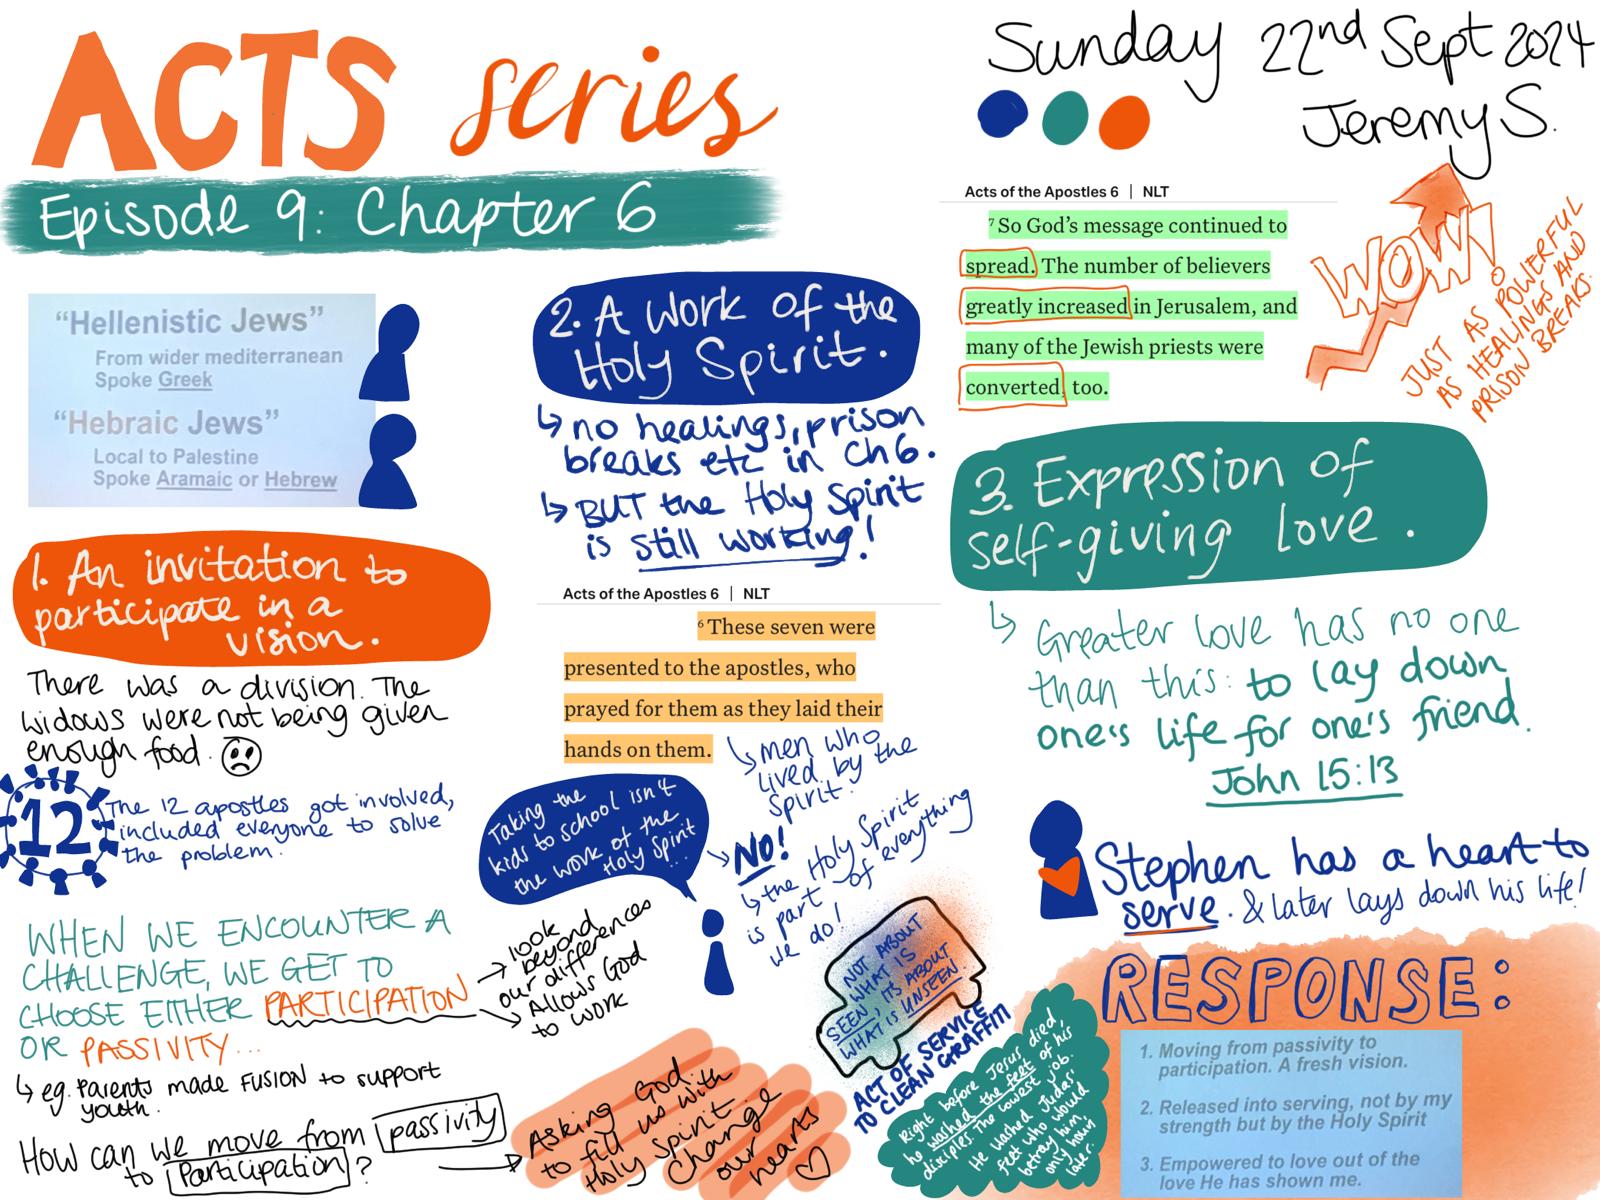 ACTS series
Episode 9: Chapter 6
Sunday 22nd Sept 2024
Jeremy S.
"Hellenistic Jews"
From wider mediterranean
Spoke Greek
"Hebraic Jews"
Local to Palestine
Spoke Aramaic or Hebrew
1. An invitation to
participate in a
vision.
There was a division. The
widows were not being given
enough food.
12
The 12 apostles got involved,
included everyone to solve
the problem.
WHEN WE ENCOUNTER A
CHALLENGE, WE GET TO
CHOOSE EITHER PARTICIPATION
OR PASSIVITY...
→ look
beyond
our differences
→ Allows God
to work
↳ eg. Parents made FUSION to support
youth.
How can we move from passivity
to Participation?
→ Asking God
to fill us with
Holy Spirit
Change
our
hearts
2. A work of the
Holy Spirit.
↳ no healings, prison
breaks etc in Ch 6.
↳ BUT the Holy Spirit
is still working!
Acts of the Apostles 6 | NLT
6 These seven were
presented to the apostles, who
prayed for them as they laid their
hands on them.
↳ men who
lived by the
Spirit.
Taking the
kids to school isn't
the work of the
Holy Spirit
...
→ NO!
↳ the Holy Spirit
is part of everything
we do!
NOT ABOUT
WHAT IS
SEEN, ITS ABOUT
WHAT IS UNSEEN
ACT OF SERVICE
TO CLEAN GRAFFITI
Acts of the Apostles 6 | NLT
7 So God's message continued to
spread. The number of believers
greatly increased in Jerusalem, and
many of the Jewish priests were
converted, too.
WOW!
JUST AS POWERFUL
AS HEALINGS AND
PRISON BREAKS.
3. Expression of
self-giving love.
↳ Greater love has no one
than this: to lay down
one's life for one's friend.
John 15:13
Stephen has a heart to
serve. & later lays down his life!
Right before Jesus died,
he washed the feet of his
disciples. The lowest job.
He washed Judas'
feet who would
betray him,
only hours
later.
RESPONSE:
1. Moving from passivity to
participation. A fresh vision.
2. Released into serving, not by my
strength but by the Holy Spirit
3. Empowered to love out of the
love He has shown me.